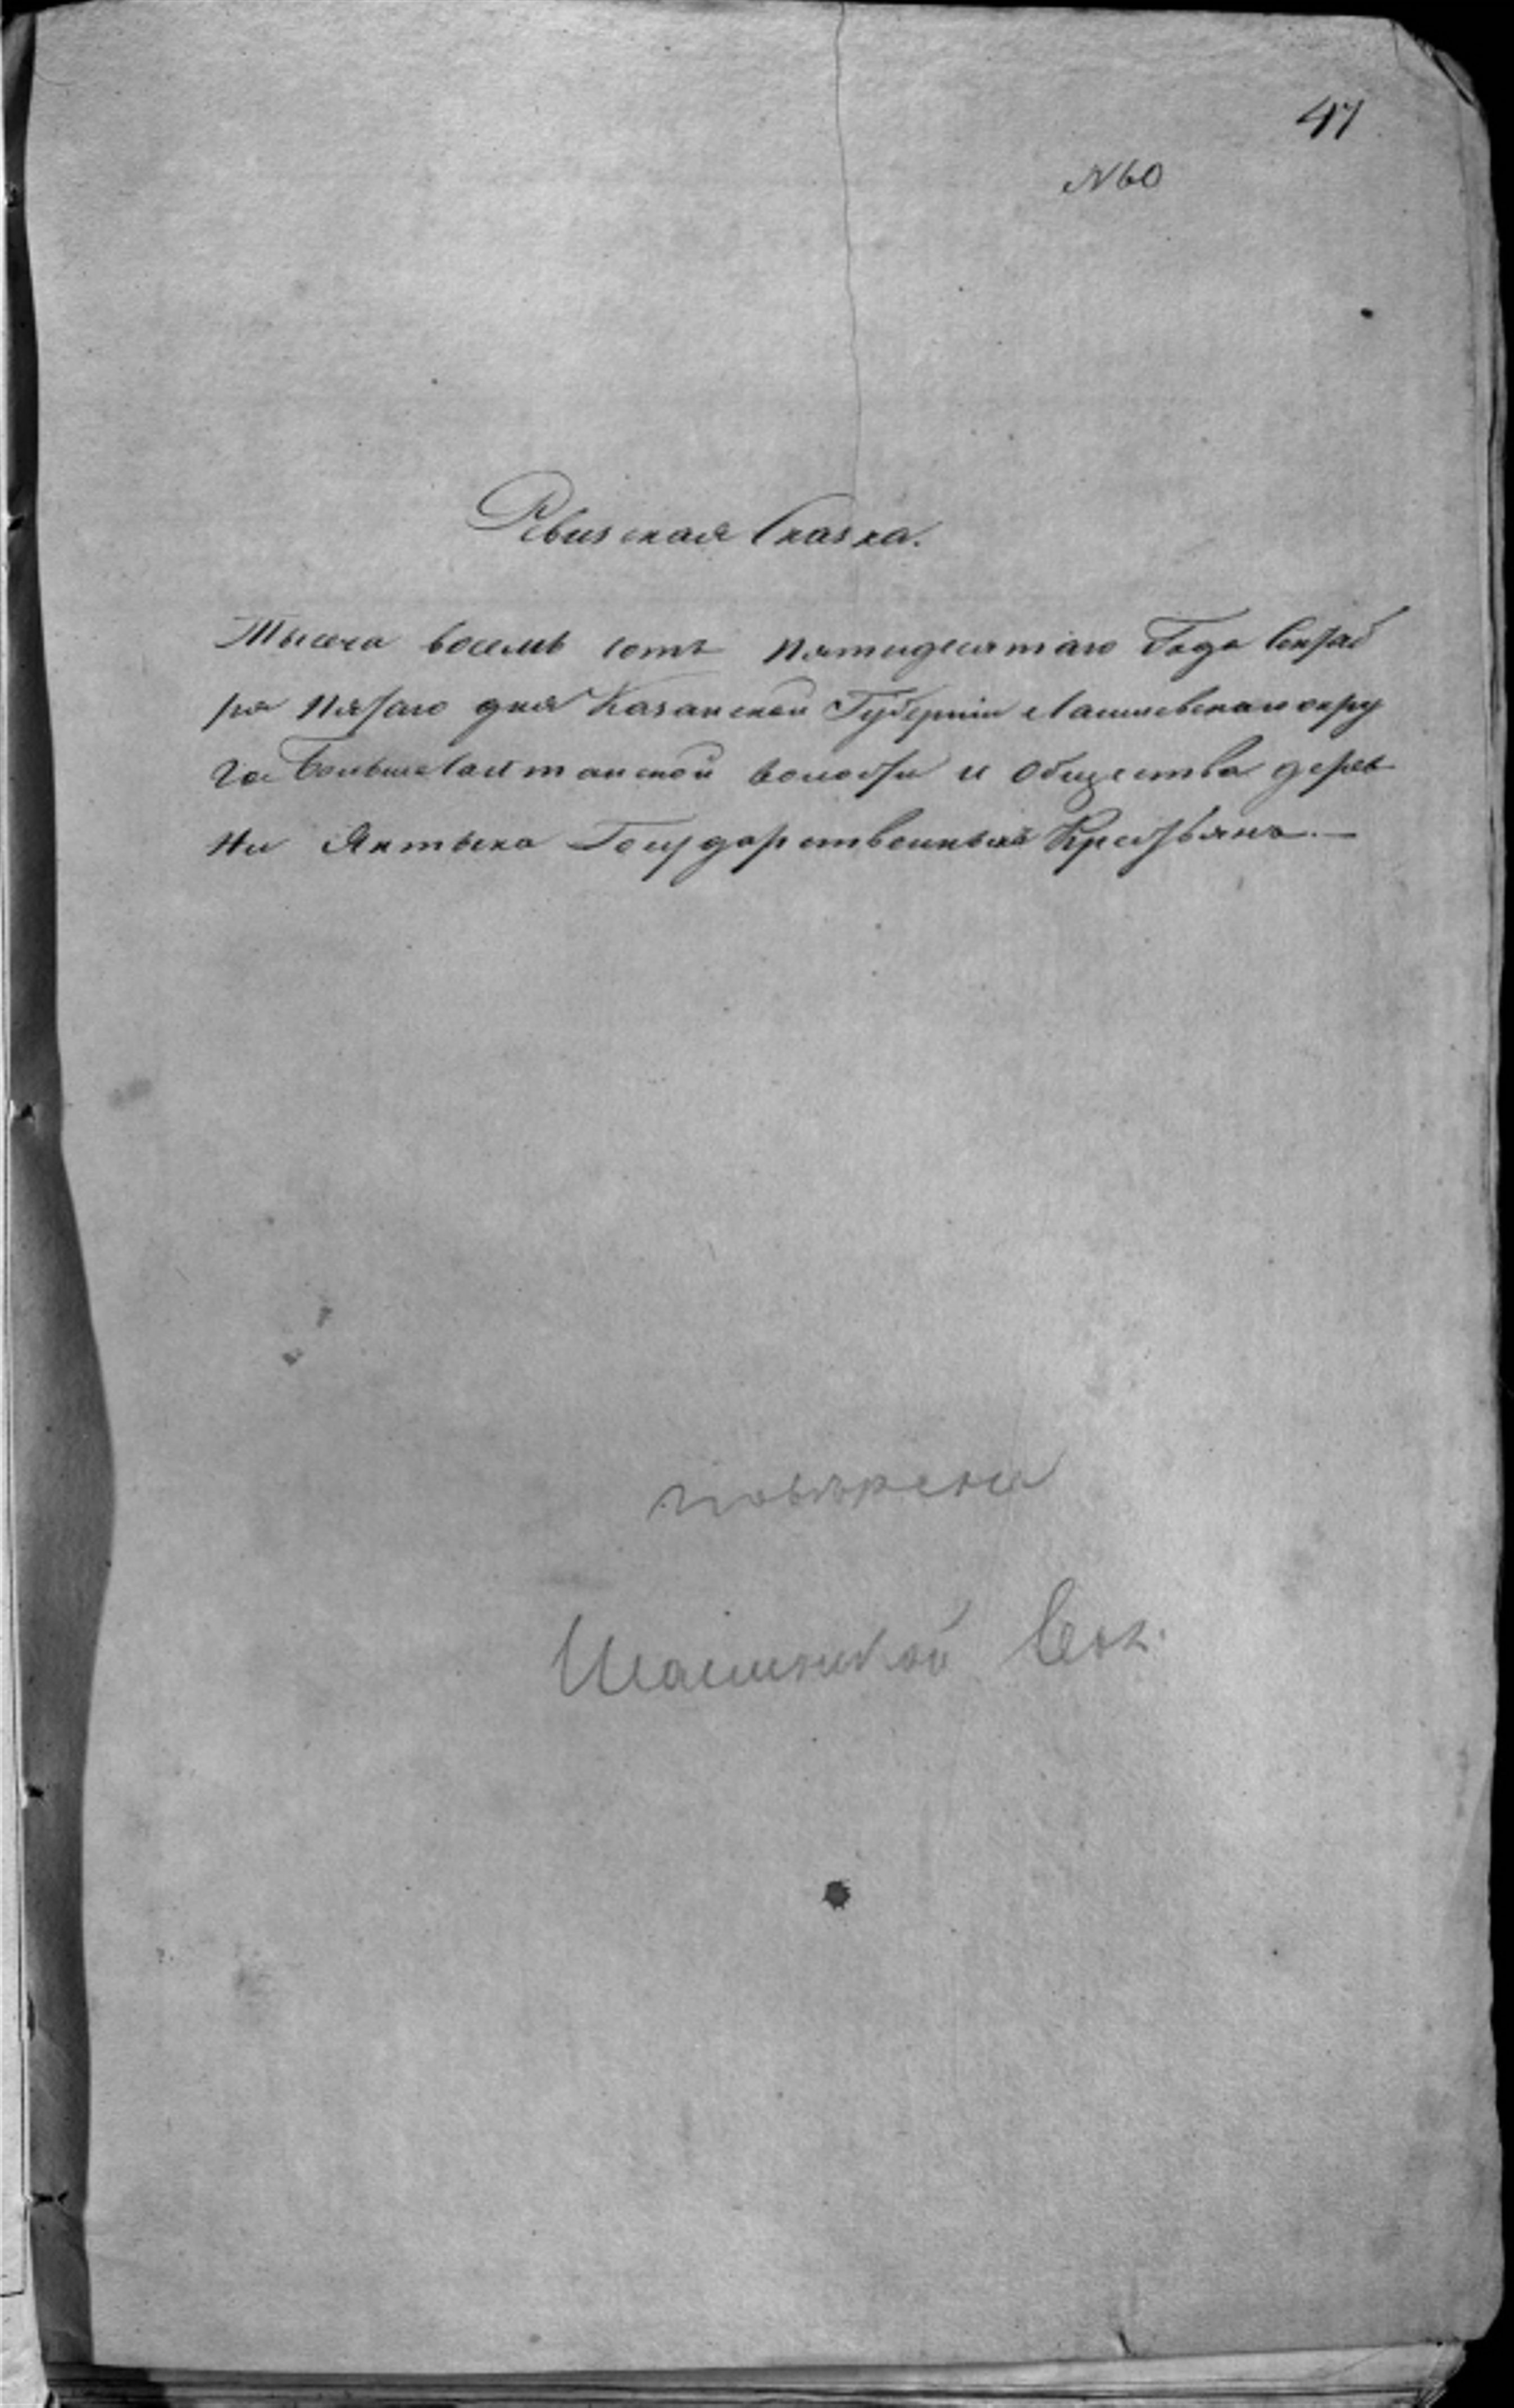 47
№ 60
Ревизская Сказка.
Тысеча восемь сотъ пятидесятаго Года Сентяб
ря пятаго дня Казанской Губерніи Лаишевскаго окру
га Больше Саитанской волости и общества дерев
ни Янтыка Государственныхъ Крестьянъ. —
повѣрена